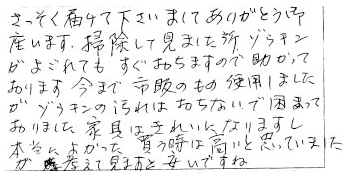 さっそく届けて下さいましてありがとう御
座います。掃除して見ました所ゾウキン
がよごれてもすぐおちますので助かって
おります今まで市販のもの使用しました
がゾウキンの汚れはおちないで困まって
おりました家具はきれいになりますし
本当によかった買う時は高いと思っていました
が考えて見ますと安いですね